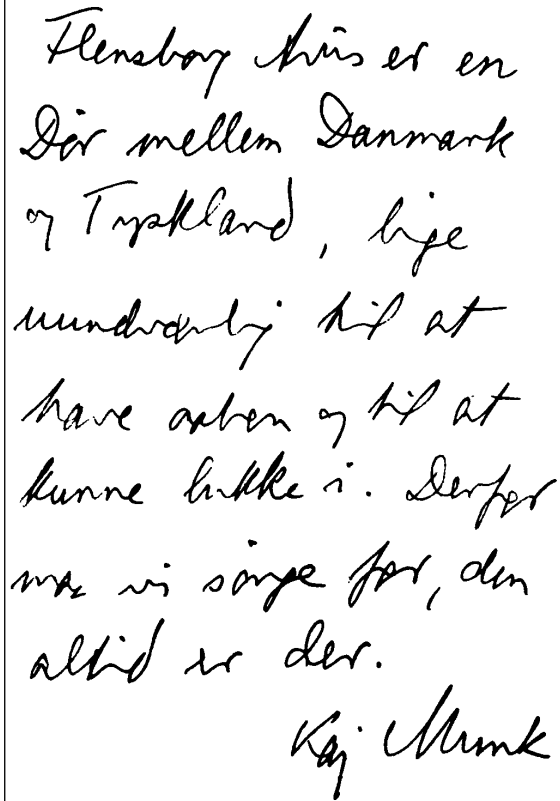 Flensborg Avis er en
Dør mellem Danmark
og Tyskland, lige
uundværlig til at
have aaben og til at
kunne lukke i. Derfor
maa vi sørge for, den
altid er der.
Kaj Munk